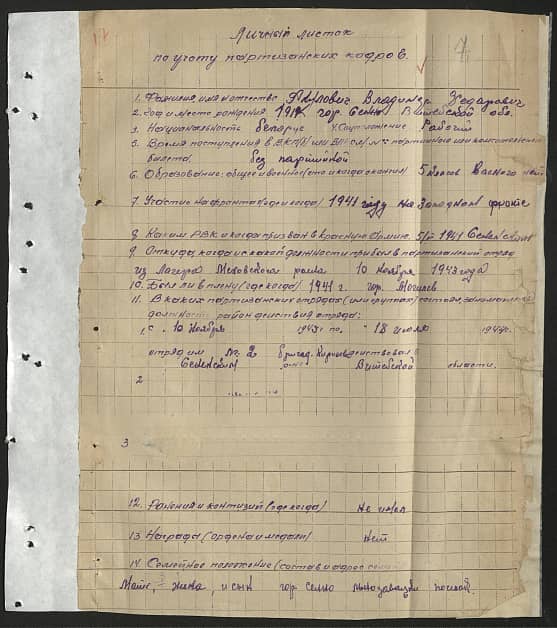 Личный листок
по учету партизанских кадров.
1. Фамилия имя отчество Владимир
2. Год и место рождения гор. Сенно Витебской обл.
3. Национальность беларус 4. Соц. положение Рабочий
5. Время поступления в ВКП/б/ или ВЛКСМ/ № партийного или комсомольского
билета. без партийной
6. Образование: общее и военное (что и когда окончил) 5 классов Военного нет
7. Участие на фронте (где и когда) 1941 году на Западном фронте
8. Каким РВК и когда призван в Красную Армию 1941 Сененским
9. Откуда, когда и с какой должности прибыл в партизанский отряд
из Лагеря райна 10 ноября 1943 года
10. Был ли в плену (где когда) 1941 г. гор. Могилев
11. В каких партизанских отрядах (или группах) состоял, занимаемая
должность район действия отряда:
1. с. 10 ноября 1943 г по. 18 июля 1944 г.
отряд им № 2 бригад. действовал в
Сененским Витебской области.
2
3
12. Ранения и контузий (где когда) Не имел
13 Награда (ордена и медали) Нет
14. Семейное положение (состав и адрес семьи)
Мать, жена, и сын гор. сенно